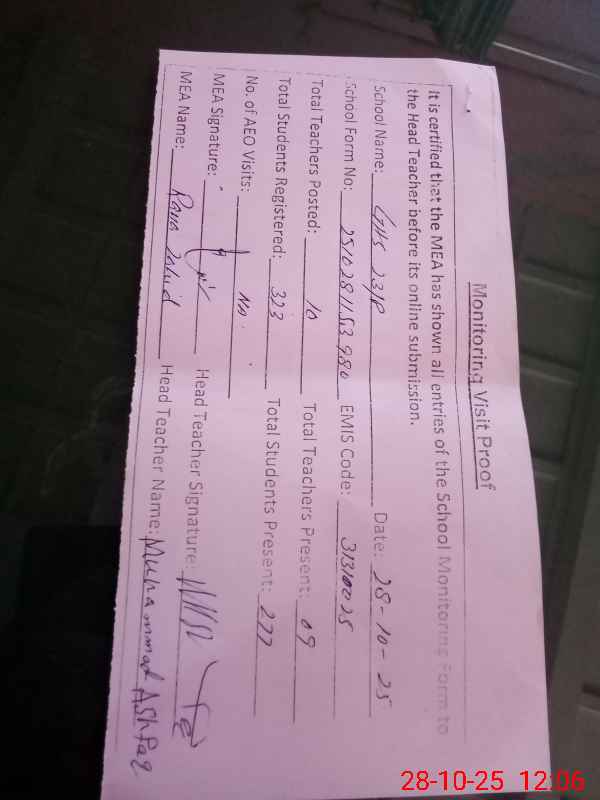 Monitoring Visit Proof
It is certified that the MEA has shown all entries of the School Monitoring Form to
the Head Teacher before its online submission.
School Name: GHS 23/P Date: 28-10-25
School Form No: 2510281153980 EMIS Code: 31310025
Total Teachers Posted: 10 Total Teachers Present: 09
Total Students Registered: 323 Total Students Present: 277
No. of AEO Visits: No
MEA Signature: Head Teacher Signature:
MEA Name: Rana Head Teacher Name: Muhammad Ashfaq
28-10-25 12:06